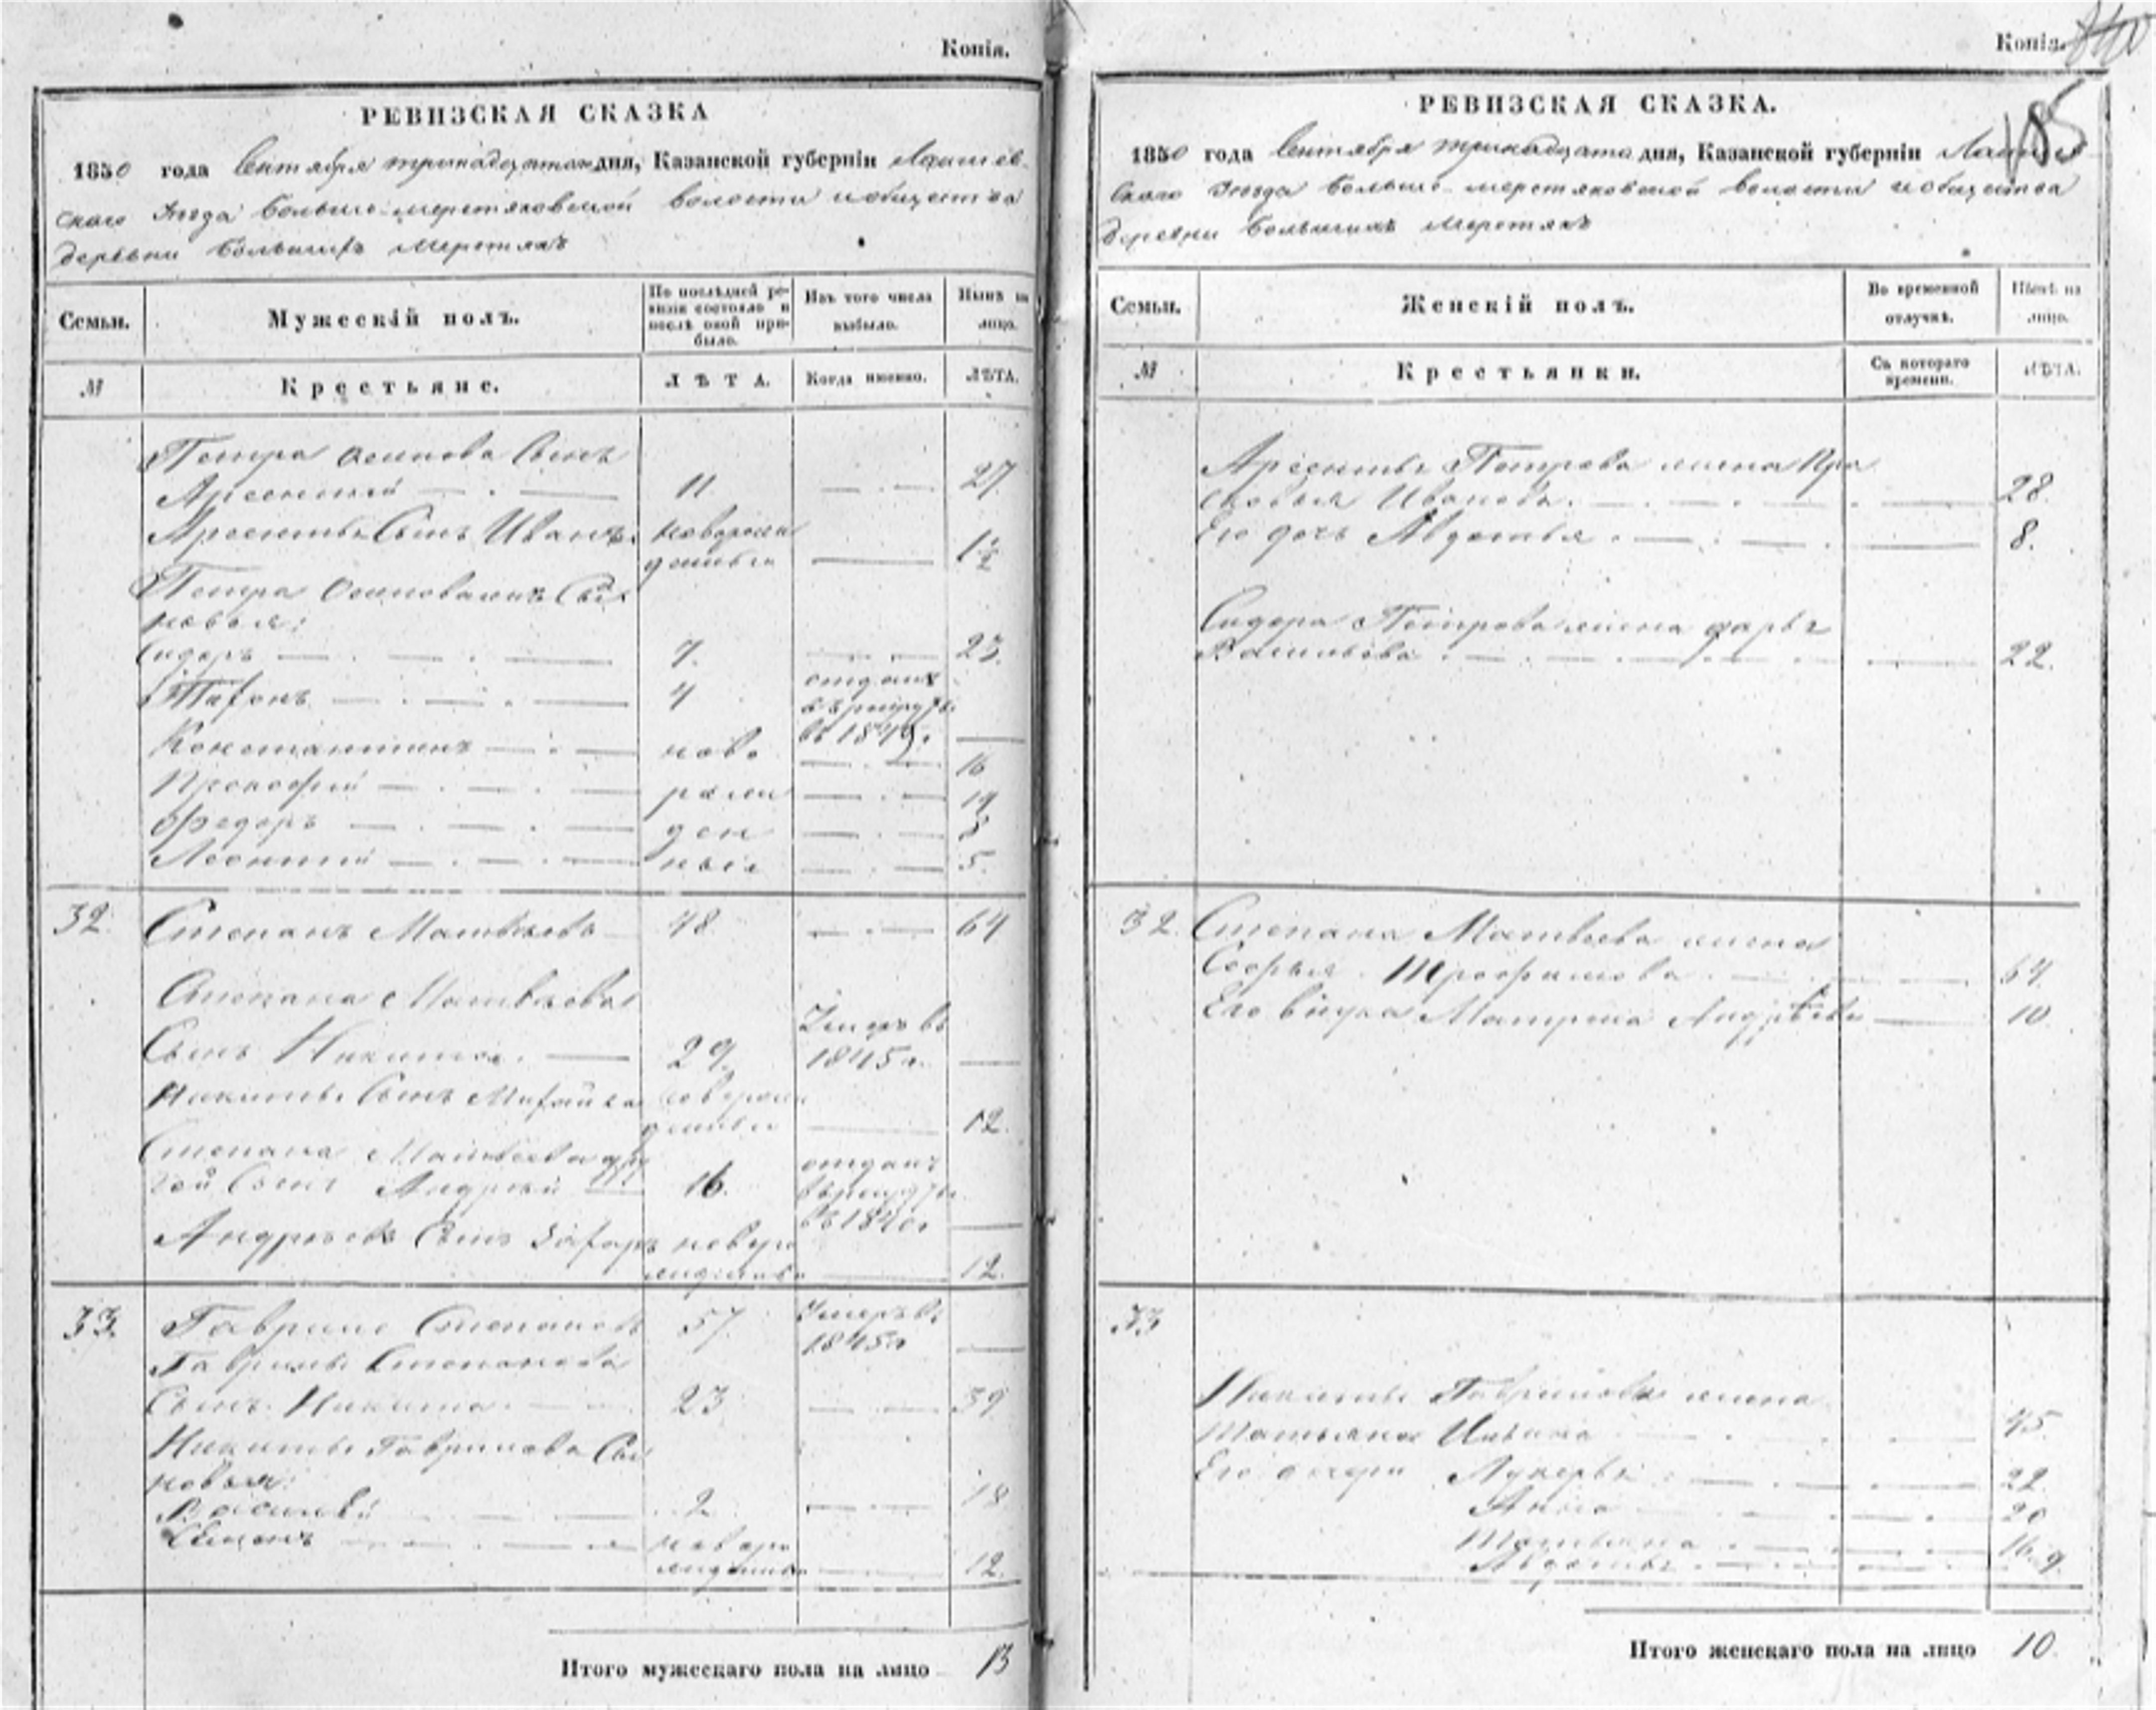 Копія.
РЕВИЗСКАЯ СКАЗКА
1850 года Сентября тринадцатаго дня, Казанской губерніи Лаишев-
скаго уезда Больше-меретяковской волости и общества
деревни Большихъ Меретякъ
Семьи.
Мужескій полъ.
По послѣдней ре-
визіи состояло и
послѣ оной при-
было.
Изъ того числа
выбыло.
Нынѣ на
лицо.
№
Крестьяне.
ЛѢТА.
Когда именно.
ЛѢТА.
Петра Осипова Сынъ
Арсентий 11 27
Арсентья Сынъ Иванъ новорож
денный 1½
Петра Осиповы Сы
новья:
Сидоръ 7. 23.
Тихонъ 4 отданъ
в рекруты
въ 1849г.
Константинъ ново 16
Прокофий рож
Федоръ ден 8
Леонтий ные 5.
32. Степанъ Матвѣевъ 48 64
Степана Матвѣева
Сынъ Никита. 29. Умеръ въ
1845г.
Никиты Сынъ Михайла новорож
денный 12.
Степана Матвеева дру
гой Сынъ Андрей 16. отданъ
в рекруты
въ 1840г
Андрѣевъ Сынъ Захаръ новоро
жденный 12.
33. Гаврило Степановъ 57. Умеръ въ
1845г
Гаврилы Степанова
Сынъ Никита 23 39
Никиты Гаврилова Сы
новья:
Василий 2 18
Семенъ новоро
жденный 12.
Итого мужескаго пола на лицо 13
Копія.
185
РЕВИЗСКАЯ СКАЗКА.
1850 года Сентября тринадцатаго дня, Казанской губерніи Лаишев
скаго уезда Больше-меретяковской волости и общества
деревни Большихъ Меретякъ
Семьи.
Женскій полъ.
Во временной
отлучкѣ.
Нынѣ на
лицо.
№
Крестьянки.
Съ котораго
времени.
ЛѢТА.
Арсентья Петрова жена Пра
сковья Иванова. 28.
Его дочь Авдотья 8.
Сидора Петрова жена Дарья
Васильева 22.
32. Степана Матвеева жена
Софья Трофимова 64.
Его внука Матрена Андреева 10
33
Никиты Гаврилова жена
Татьяна Ильина 45.
Его дочери Лукерья 22
Анна 20
Татьяна 16
Авдотья 9.
Итого женскаго пола на лицо 10.